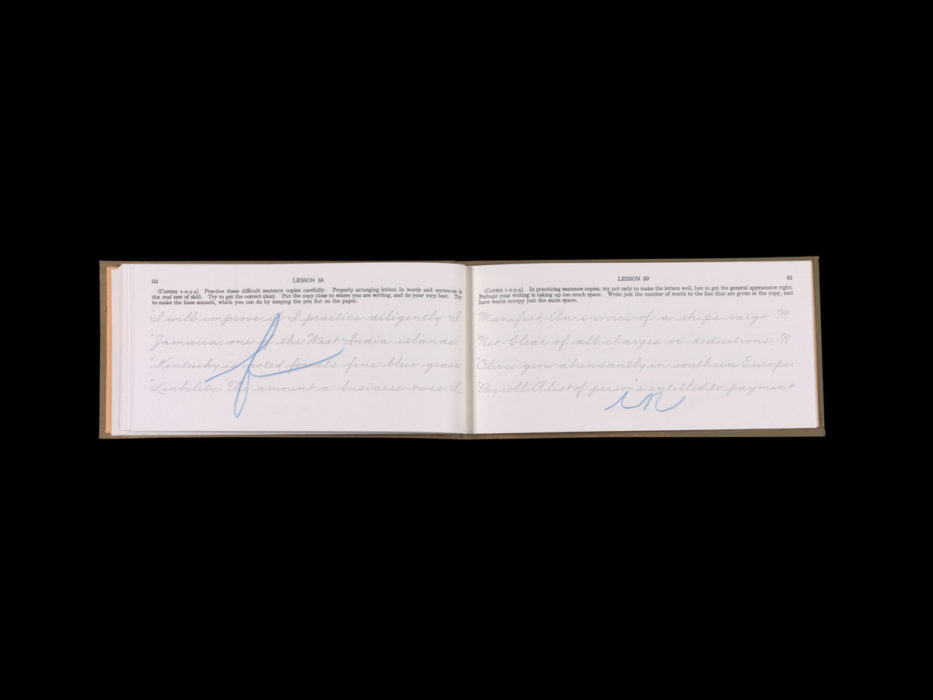 60
LESSON 58
(COPIES 1-2-3-4) Practice these difficult sentence copies carefully. Properly arranging letters in words and sentences is
the real test of skill. Try to get the correct slant. Put the copy close to where you are writing, and do your very best. Try
to make the lines smooth, which you can do by keeping the pen flat on the paper.
I will improve if I practice diligently I
Jamaica, one of the West India islands.
Kentucky is noted for its fine blue grass
Liability. The amount a business owes L
f
61
LESSON 59
(COPIES 1-2-3-4) In practicing sentence copies, try not only to make the letters well, but to get the general appearance right.
Perhaps your writing is taking up too much space. Write just the number of words to the line that are given in the copy, and
have words occupy just the same space.
Manifest. An invoice of a ship's cargo. M
Net. Clear of all charges or deductions. N
Olives grow abundantly in southern Europe.
Payroll. A list of persons entitled to payment
in